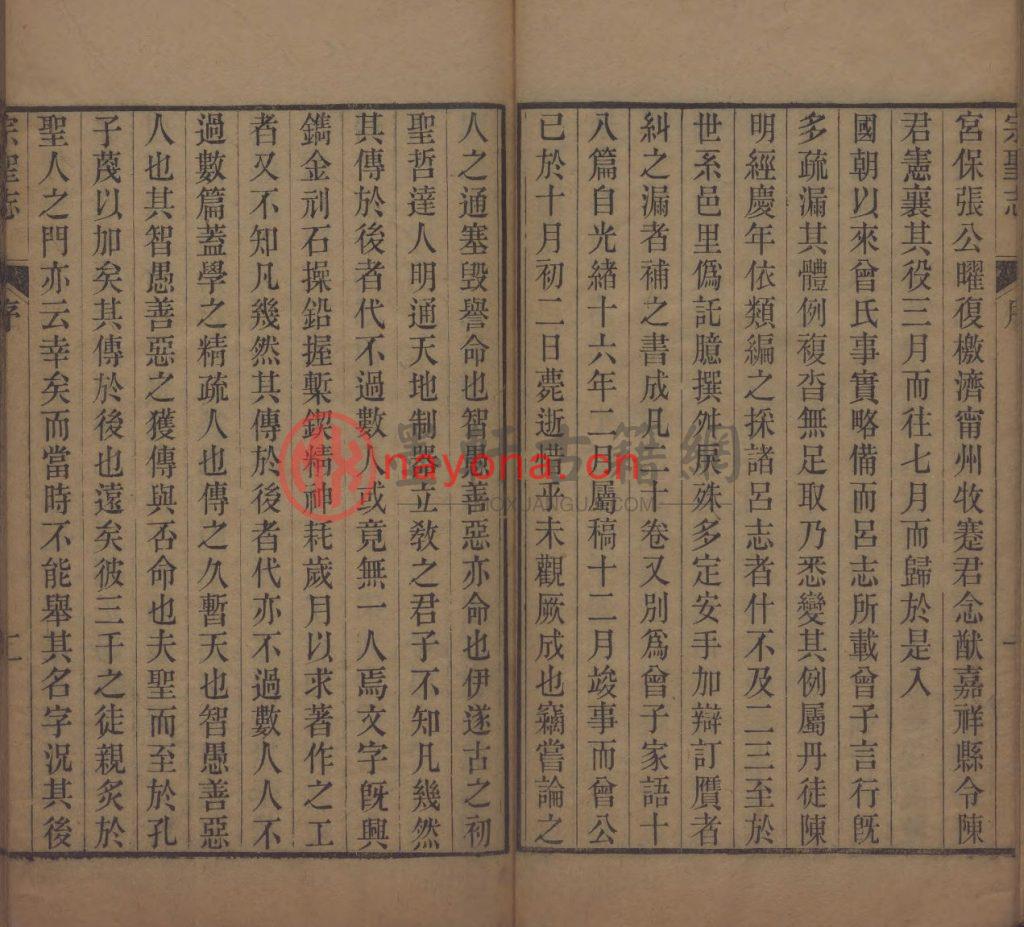 宗聖志
序
一
宮保張公曜復檄濟甯州牧蹇君念猷嘉祥縣令陳
君憲襄其役三月而往七月而歸於是入
國朝以來曾氏事實略備而呂志所載曾子言行旣
多疏漏其體例複沓無足取乃悉變其例屬丹徒陳
明經慶年依類編之採諸呂志者什不及二三至於
世系邑里僞託臆撰舛戾殊多定安手加辯訂贋者
糾之漏者補之書成凡二十卷又別爲曾子家語十
八篇自光緒十六年二月屬稿十二月竣事而曾公
已於十月初二日薨逝惜乎未觀厥成也竊嘗論之
人之通塞毀譽命也智愚善惡亦命也伊遂古之初
聖哲達人明通天地制器立教之君子不知凡幾然
其傳於後者代不過數人或竟無一人焉文字旣興
鐫金刋石操鉛握槧鍥精神耗歲月以求著作之工
者又不知凡幾然其傳於後者代亦不過數人人不
過數篇蓋學之精疏人也傳之久暫天也智愚善惡
人也其智愚善惡之獲傳與否命也夫聖而至於孔
子蔑以加矣其傳於後也遠矣彼三千之徒親炙於
聖人之門亦云幸矣而當時不能舉其名字況其後
宗聖志
序
二
墨軒古籍網
nayona.cn
MOXUANGUJI.COM